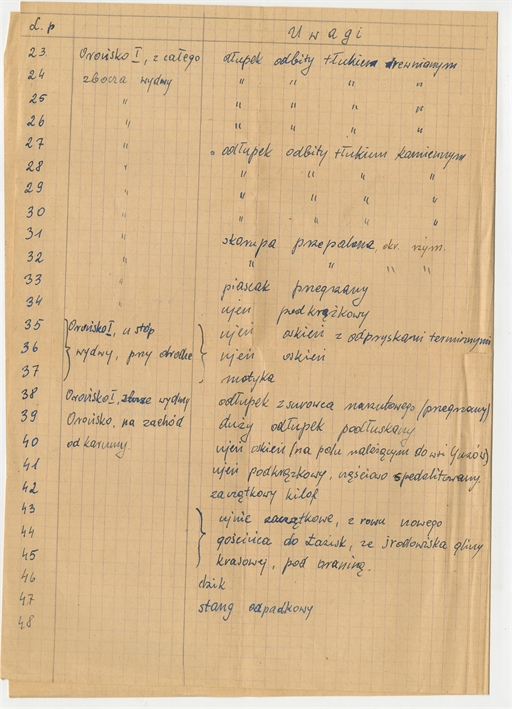 L. p Uwagi
23 Orońsko I, z całego odłupek odbity tłukiem drewnianym
24 zbocza wydmy " " " "
25 " " " " "
26 " " " " "
27 " odłupek odbity tłukiem kamiennym
28 " " " " "
29 " " " " "
30 " " " " "
31 " skorupa przepalona, okr. rzym.
32 " " " " "
33 " piaskak przegrzany
34 " podkrążkowy
35 Orońsko I, u stóp z odpryskami termicznymi
36 wydmy, przy drodze
37 motyka
38 Orońsko I, zbocze wydmy odłupek z surowca narzutowego (przegrzany)
39 Orońsko, na zachód duży odłupek podłuskany
40 od karczmy. (na polu należącym do wsi Guzów)
41 podkrążkowy, częściowo
42 zaczątkowy kilof
43 zaczątkowe, z rowu nowego
44 gościńca do Łazisk, ze środowiska gliny
45 krasowej, pod
46 dzik
47 stang odpadkowy
48